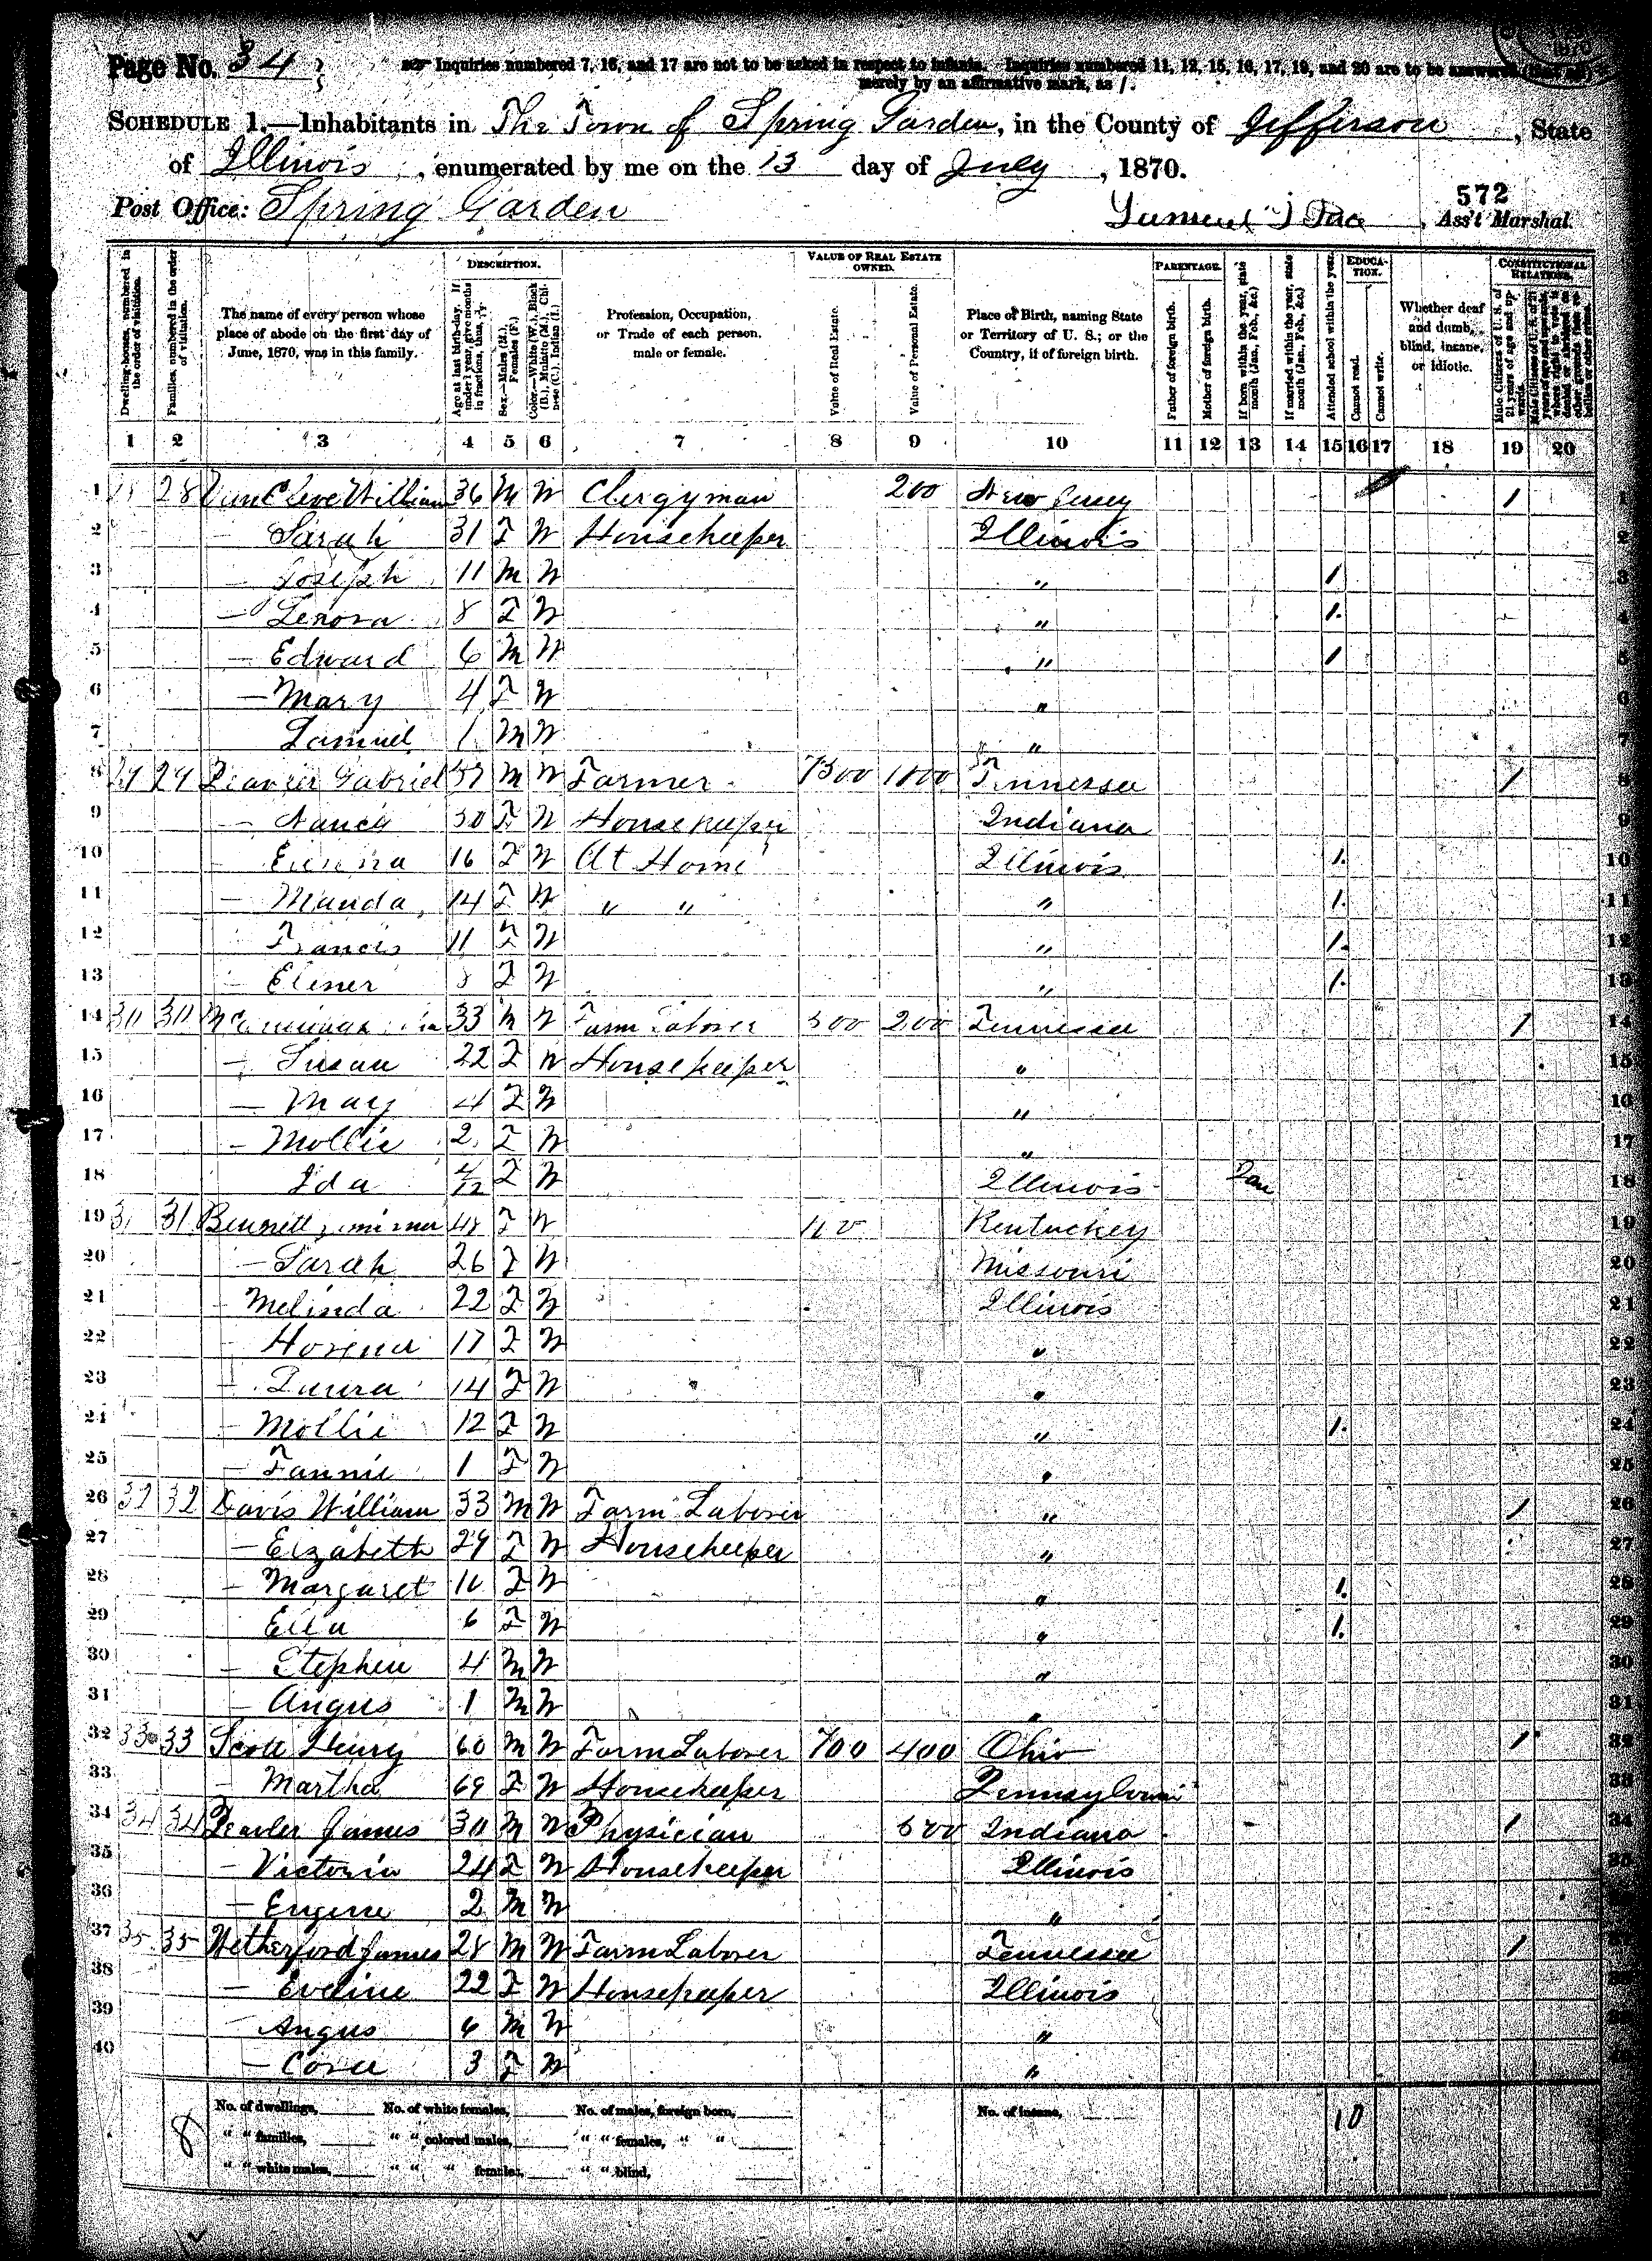 Page No. 34
Inquiries numbered 7, 16, and 17 are not to be asked in respect to infants. Inquiries numbered 11, 12, 15, 16, 17, 19, and 20 are to be answered
merely by an affirmative mark, as /.
SCHEDULE 1.—Inhabitants in The Town of Spring Garden, in the County of Jefferson, State
of Illinois, enumerated by me on the 13 day of July, 1870.
572
Post Office: Spring Garden
Ass't Marshal.
Dwelling-houses, numbered in the order of visitation.
Families, numbered in the order of visitation.
The name of every person whose place of abode on the first day of June, 1870, was in this family.
DESCRIPTION.
Age at last birth-day. If under 1 year, give months in fractions, thus, 3/12
Sex.—Males (M.), Females (F.)
Color.—White (W.), Black (B.), Mulatto (M.), Chinese (C.), Indian (I.)
Profession, Occupation, or Trade of each person, male or female.
VALUE OF REAL ESTATE OWNED.
Value of Real Estate.
Value of Personal Estate.
Place of Birth, naming State or Territory of U. S.; or the Country, if of foreign birth.
PARENTAGE.
Father of foreign birth.
Mother of foreign birth.
If born within the year, state month (Jan., Feb., &c.)
If married within the year, state month (Jan., Feb., &c.)
EDUCATION.
Attended school within the year.
Cannot read.
Cannot write.
Whether deaf and dumb, blind, insane, or idiotic.
CONSTITUTIONAL RELATIONS.
Male Citizens of U. S. of 21 years of age and upwards.
1 2 3 4 5 6 7 8 9 10 11 12 13 14 15 16 17 18 19 20
1 28 Van Cleve William 36 M W Clergyman 200 New Jersey / 1
2 — Sarah 31 F W Housekeeper Illinois 2
3 — Joseph 11 M W " / 3
4 — Lenora 8 F W " / 4
5 — Edward 6 M W " / 5
6 — Mary 4 F W " 6
7 Samuel 1 M W " 7
8 29 29 Gabriel 37 M W Farmer Tennessee / 8
9 — Nancy 30 F W Housekeeper Indiana 9
10 — 16 F W At Home Illinois / 10
11 — Manda 14 F W " " " / 11
12 Francis 11 F W " / 12
13 — Eliner F W " / 13
14 30 30 33 M W Farm Laborer 200 Tennessee / 14
15 — Susan 22 F W Housekeeper " 15
16 — Mary 4 F W " 16
17 — Mollie 2 F W " 17
18 Ida 4/12 F W Illinois Jan 18
19 31 31 Bennett 48 F W Kentucky 19
20 — Sarah 26 F W Missouri 20
21 — Melinda 22 F W Illinois 21
22 — 17 F W " 22
23 — Laura 14 F W " 23
24 — Mollie 12 F W " / 24
25 — Fannie 1 F W " 25
26 32 32 Davis William 33 M W Farm Laborer " / 26
27 — Elzabeth 29 F W Housekeeper " 27
28 — Margaret 10 F W " / 28
29 Ella 6 F W " / 29
30 — Stephen 4 M W " 30
31 — Angus 1 M W " 31
32 33 33 Scott Henry 60 M W Farm Laborer 700 400 Ohio / 32
33 — Martha 69 F W Housekeeper Pennsylvania 33
34 34 34 James 30 M W Physician Indiana / 34
35 — Victoria 24 F W Housekeeper Illinois 35
36 — Eugene 2 M W "
37 35 35 Wetherford James 28 M W Farm Laborer Tennessee /
38 — Eveline 22 F W Housekeeper Illinois
39 Angus 6 M W "
40 — Cora 3 F W "
No. of dwellings, No. of white females, No. of males, foreign born, No. of insane,
8 " " families, " " colored males, " " females, " " 10
" " white males, " " " females, " " blind,